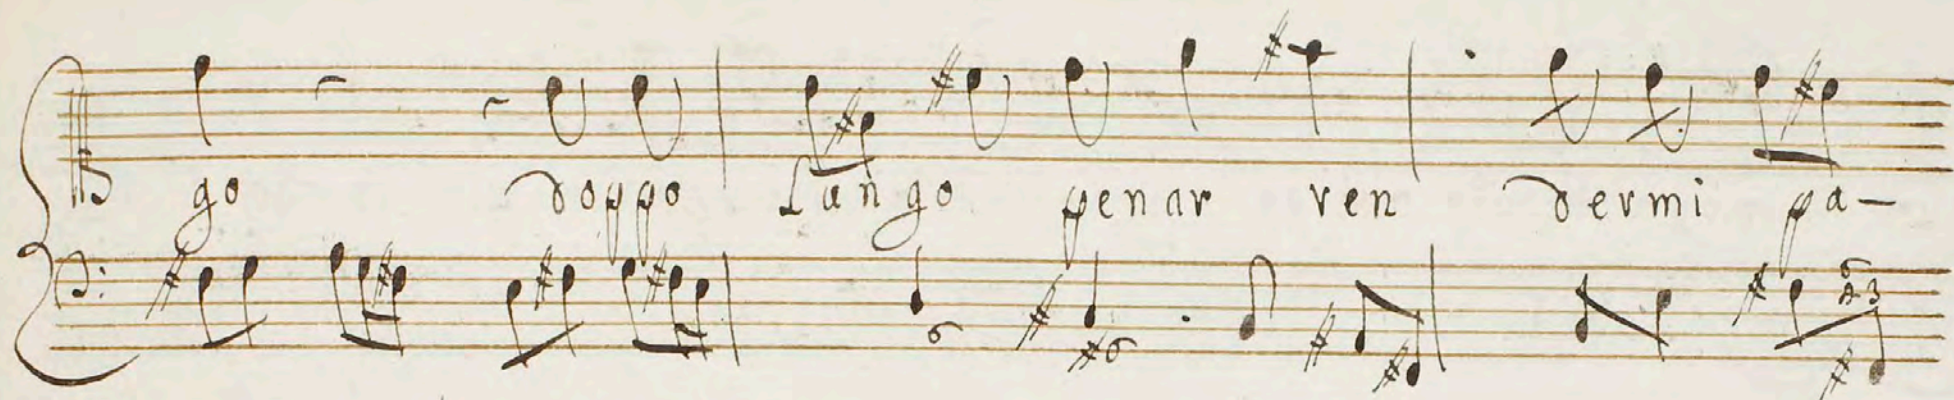 go doppo Lungo penar ren dermi pa-
6 #6 5 3